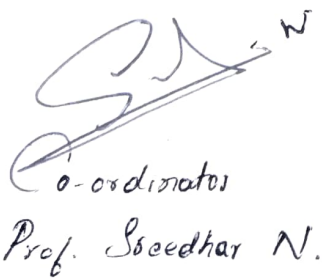 Co-ordinator
Prof. Sreedhar N.